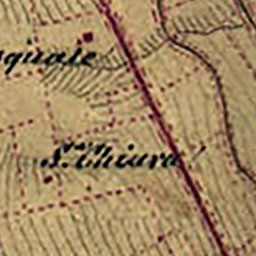 squale
S.ta Chiara